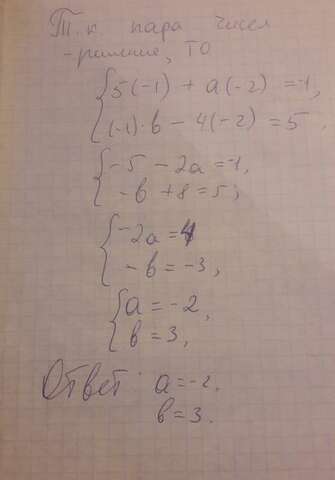 Т.к. пара чисел
-решение, то
{5(-1) + a(-2) = -1,
(-1)·b - 4(-2) = 5
{-5 - 2a = -1,
-b + 8 = 5;
{-2a = 4
-b = -3,
{a = -2,
b = 3,
Ответ: a = -2.
b = 3.